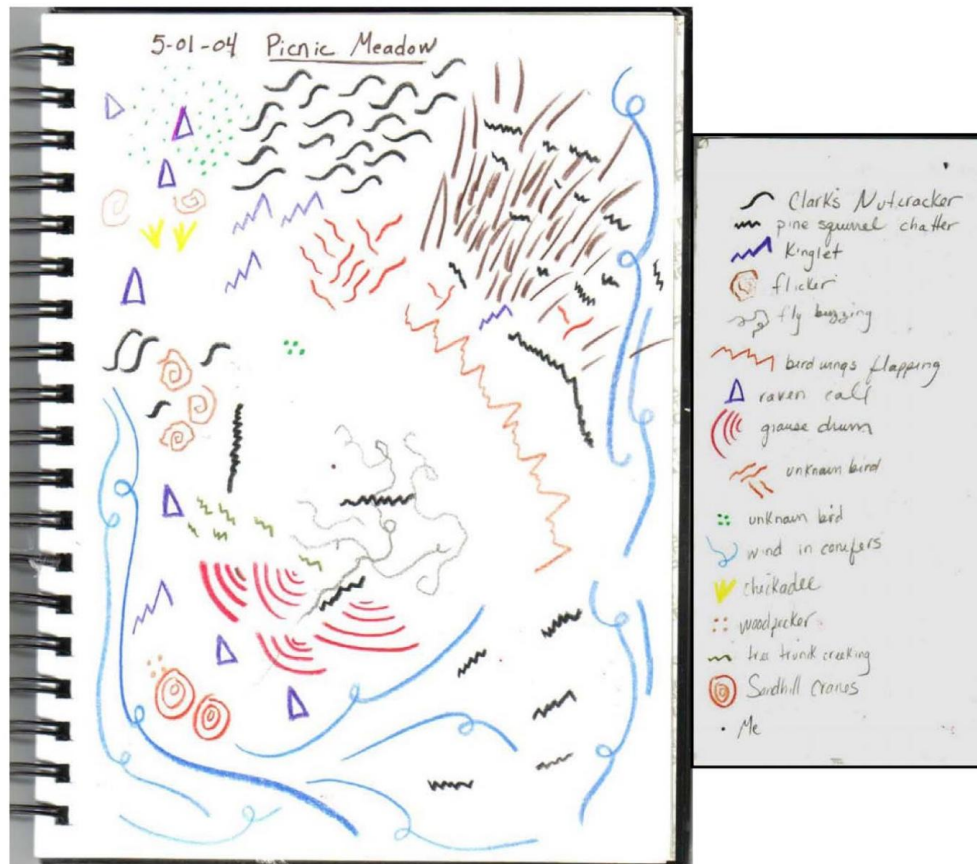 5-01-04 Picnic Meadow
Clark's Nutcracker
pine squirrel chatter
Kinglet
flicker
fly buzzing
bird wings flapping
raven call
grouse drum
unknown bird
unknown bird
wind in conifers
chickadee
woodpecker
tree trunk creeking
Sandhill Cranes
Me